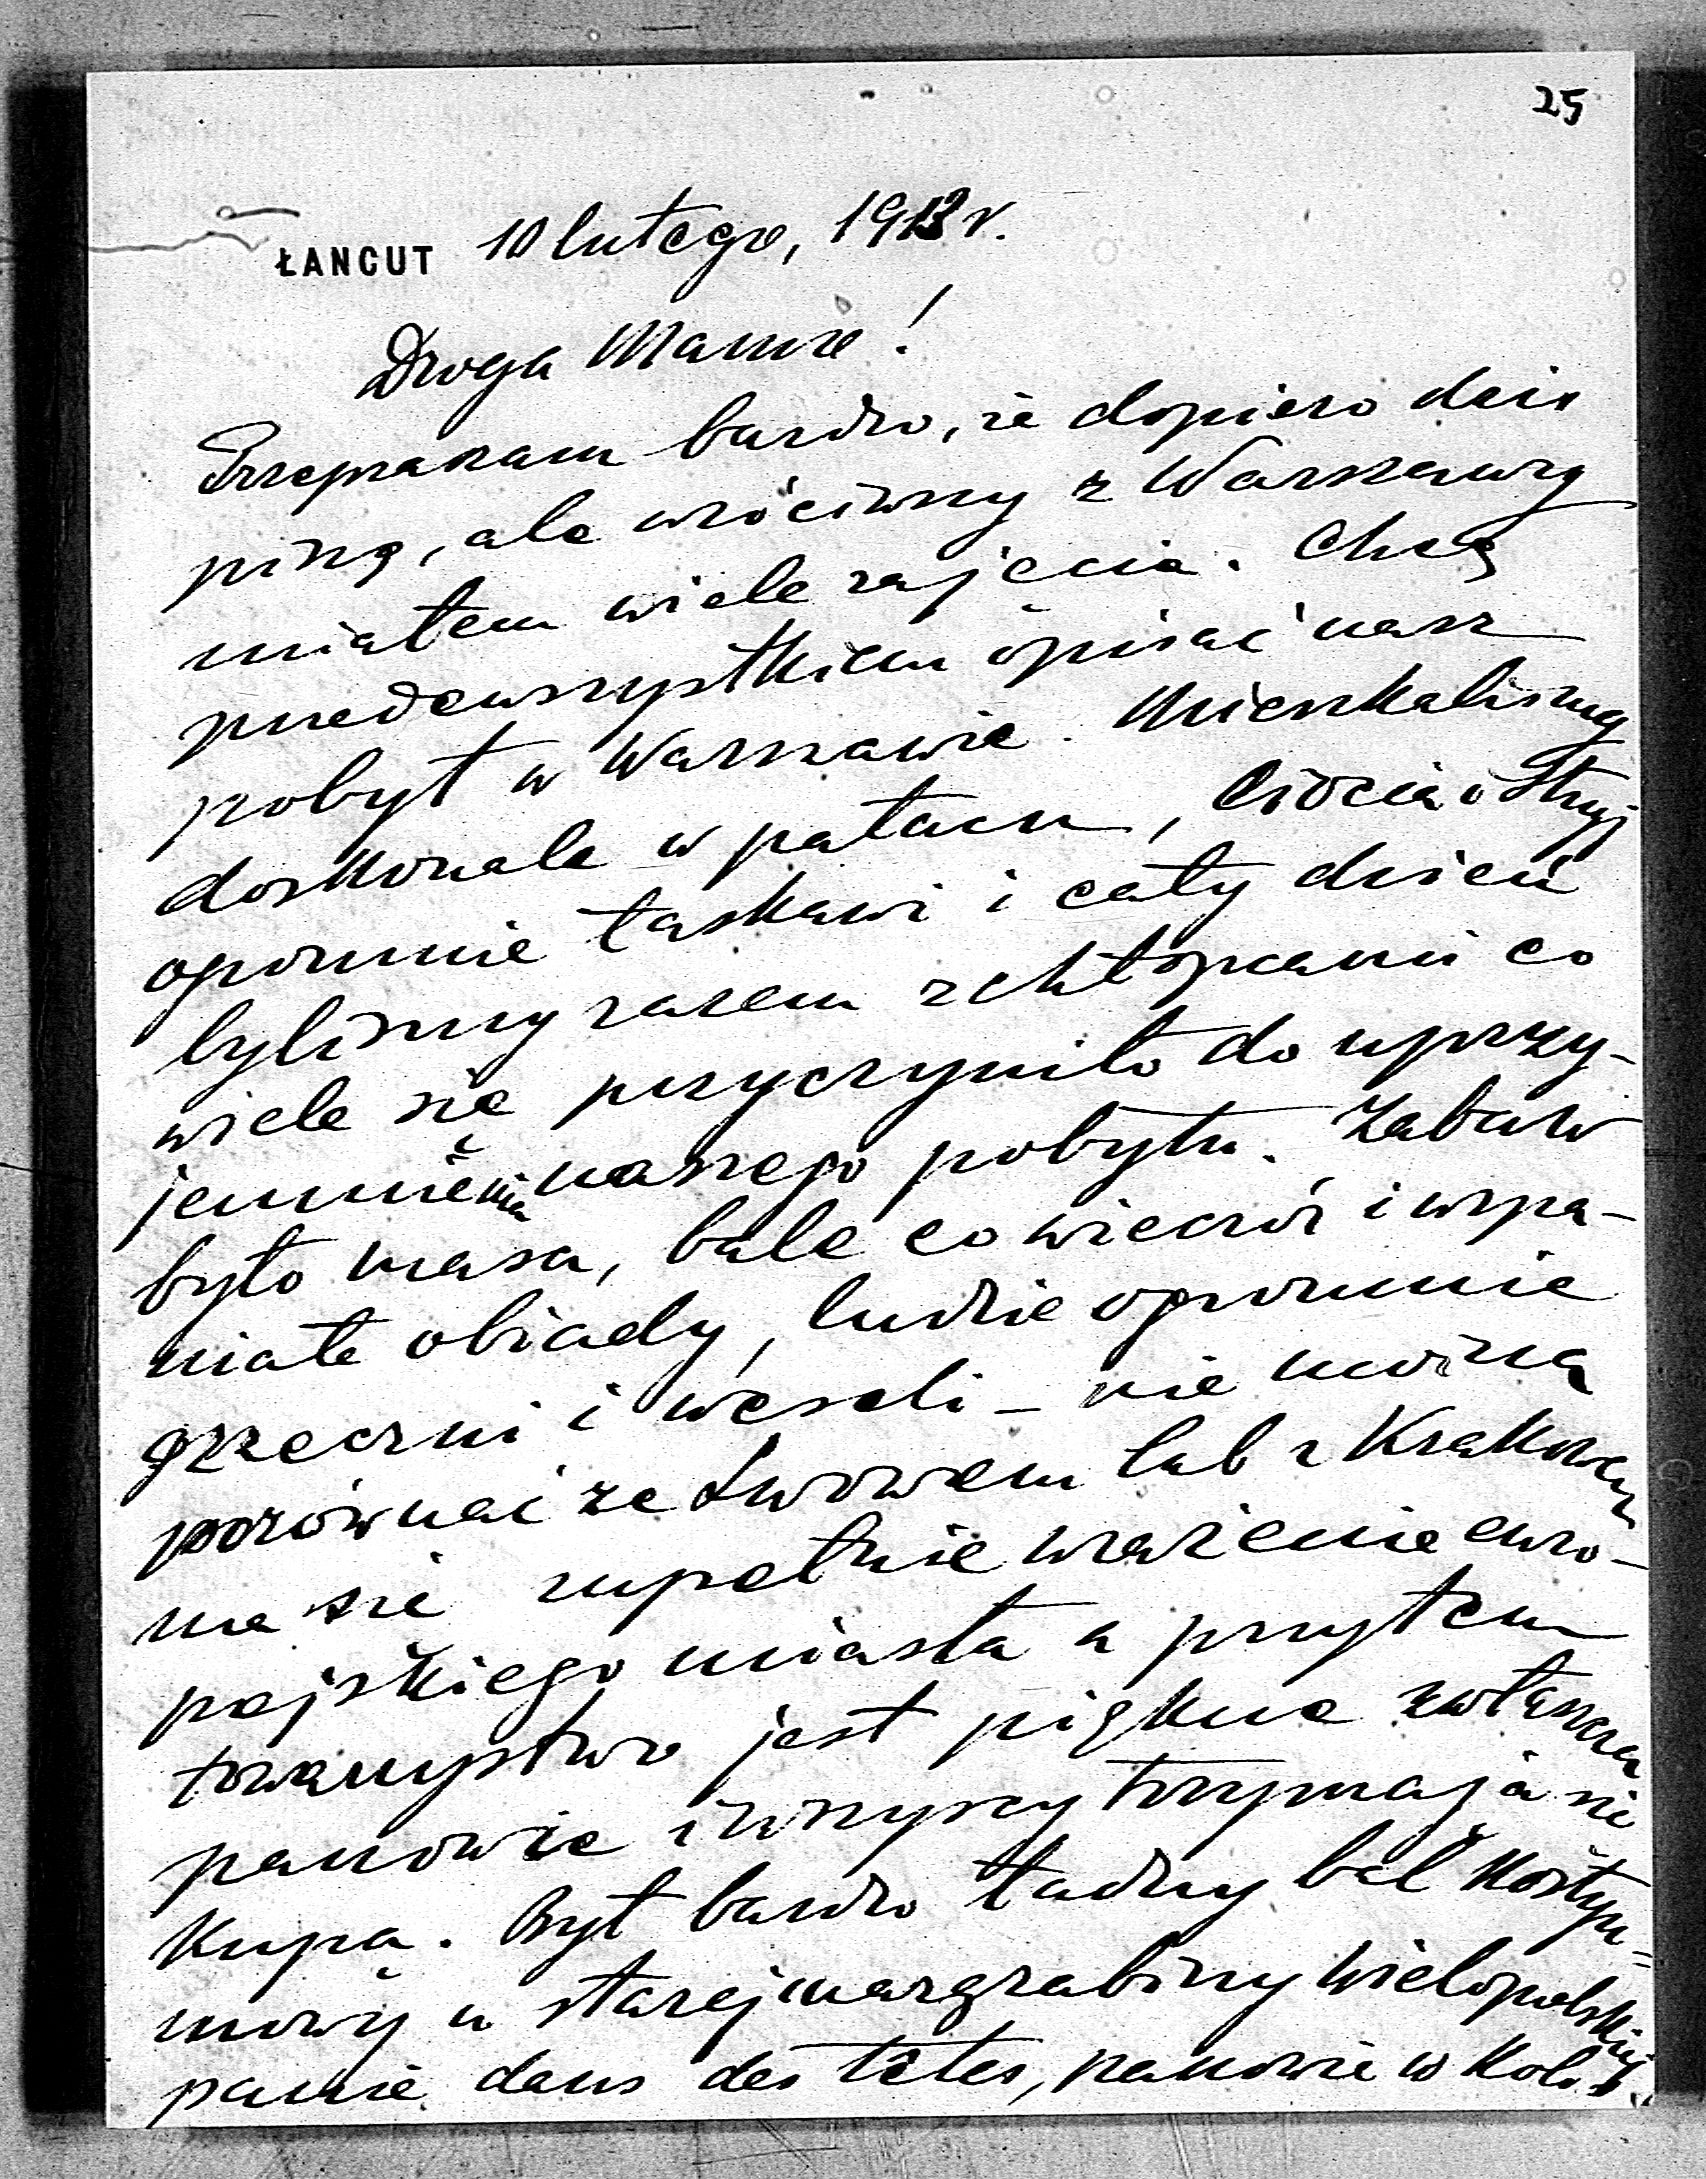 25
ŁANCUT 10 lutego, 1913 r.
Droga Mamo!
Przepraszam bardzo, że dopiero dziś
piszę, ale wróciwszy z Warszawy
miałem wiele zajęcia. Chcę
przedewszystkiem opisać nasz
pobyt w Warszawie. Mieszkaliśmy
doskonale w pałacu, Ciocia i Stryj
ogromnie łaskawi i cały dzień
byliśmy razem z chłopcami co
wiele się przyczyniło do uprzy-
jemnienia naszego pobytu. Zabaw
było masa, bale co wieczór i wspa-
niałe obiady, ludzie ogromnie
grzeczni i weseli – nie można
porównać ze Lwowem lub z Krakowem
ma się zupełnie wrażenie euro-
pejskiego miasta a przytem
towarzystwo jest piękne zwłaszcza
panowie i wszyscy trzymają się
Kupą. Był bardzo ładny bal Kostyu-
mowy u starej margrabiny Wielopolskiej
panie dans des têtes, panowie w